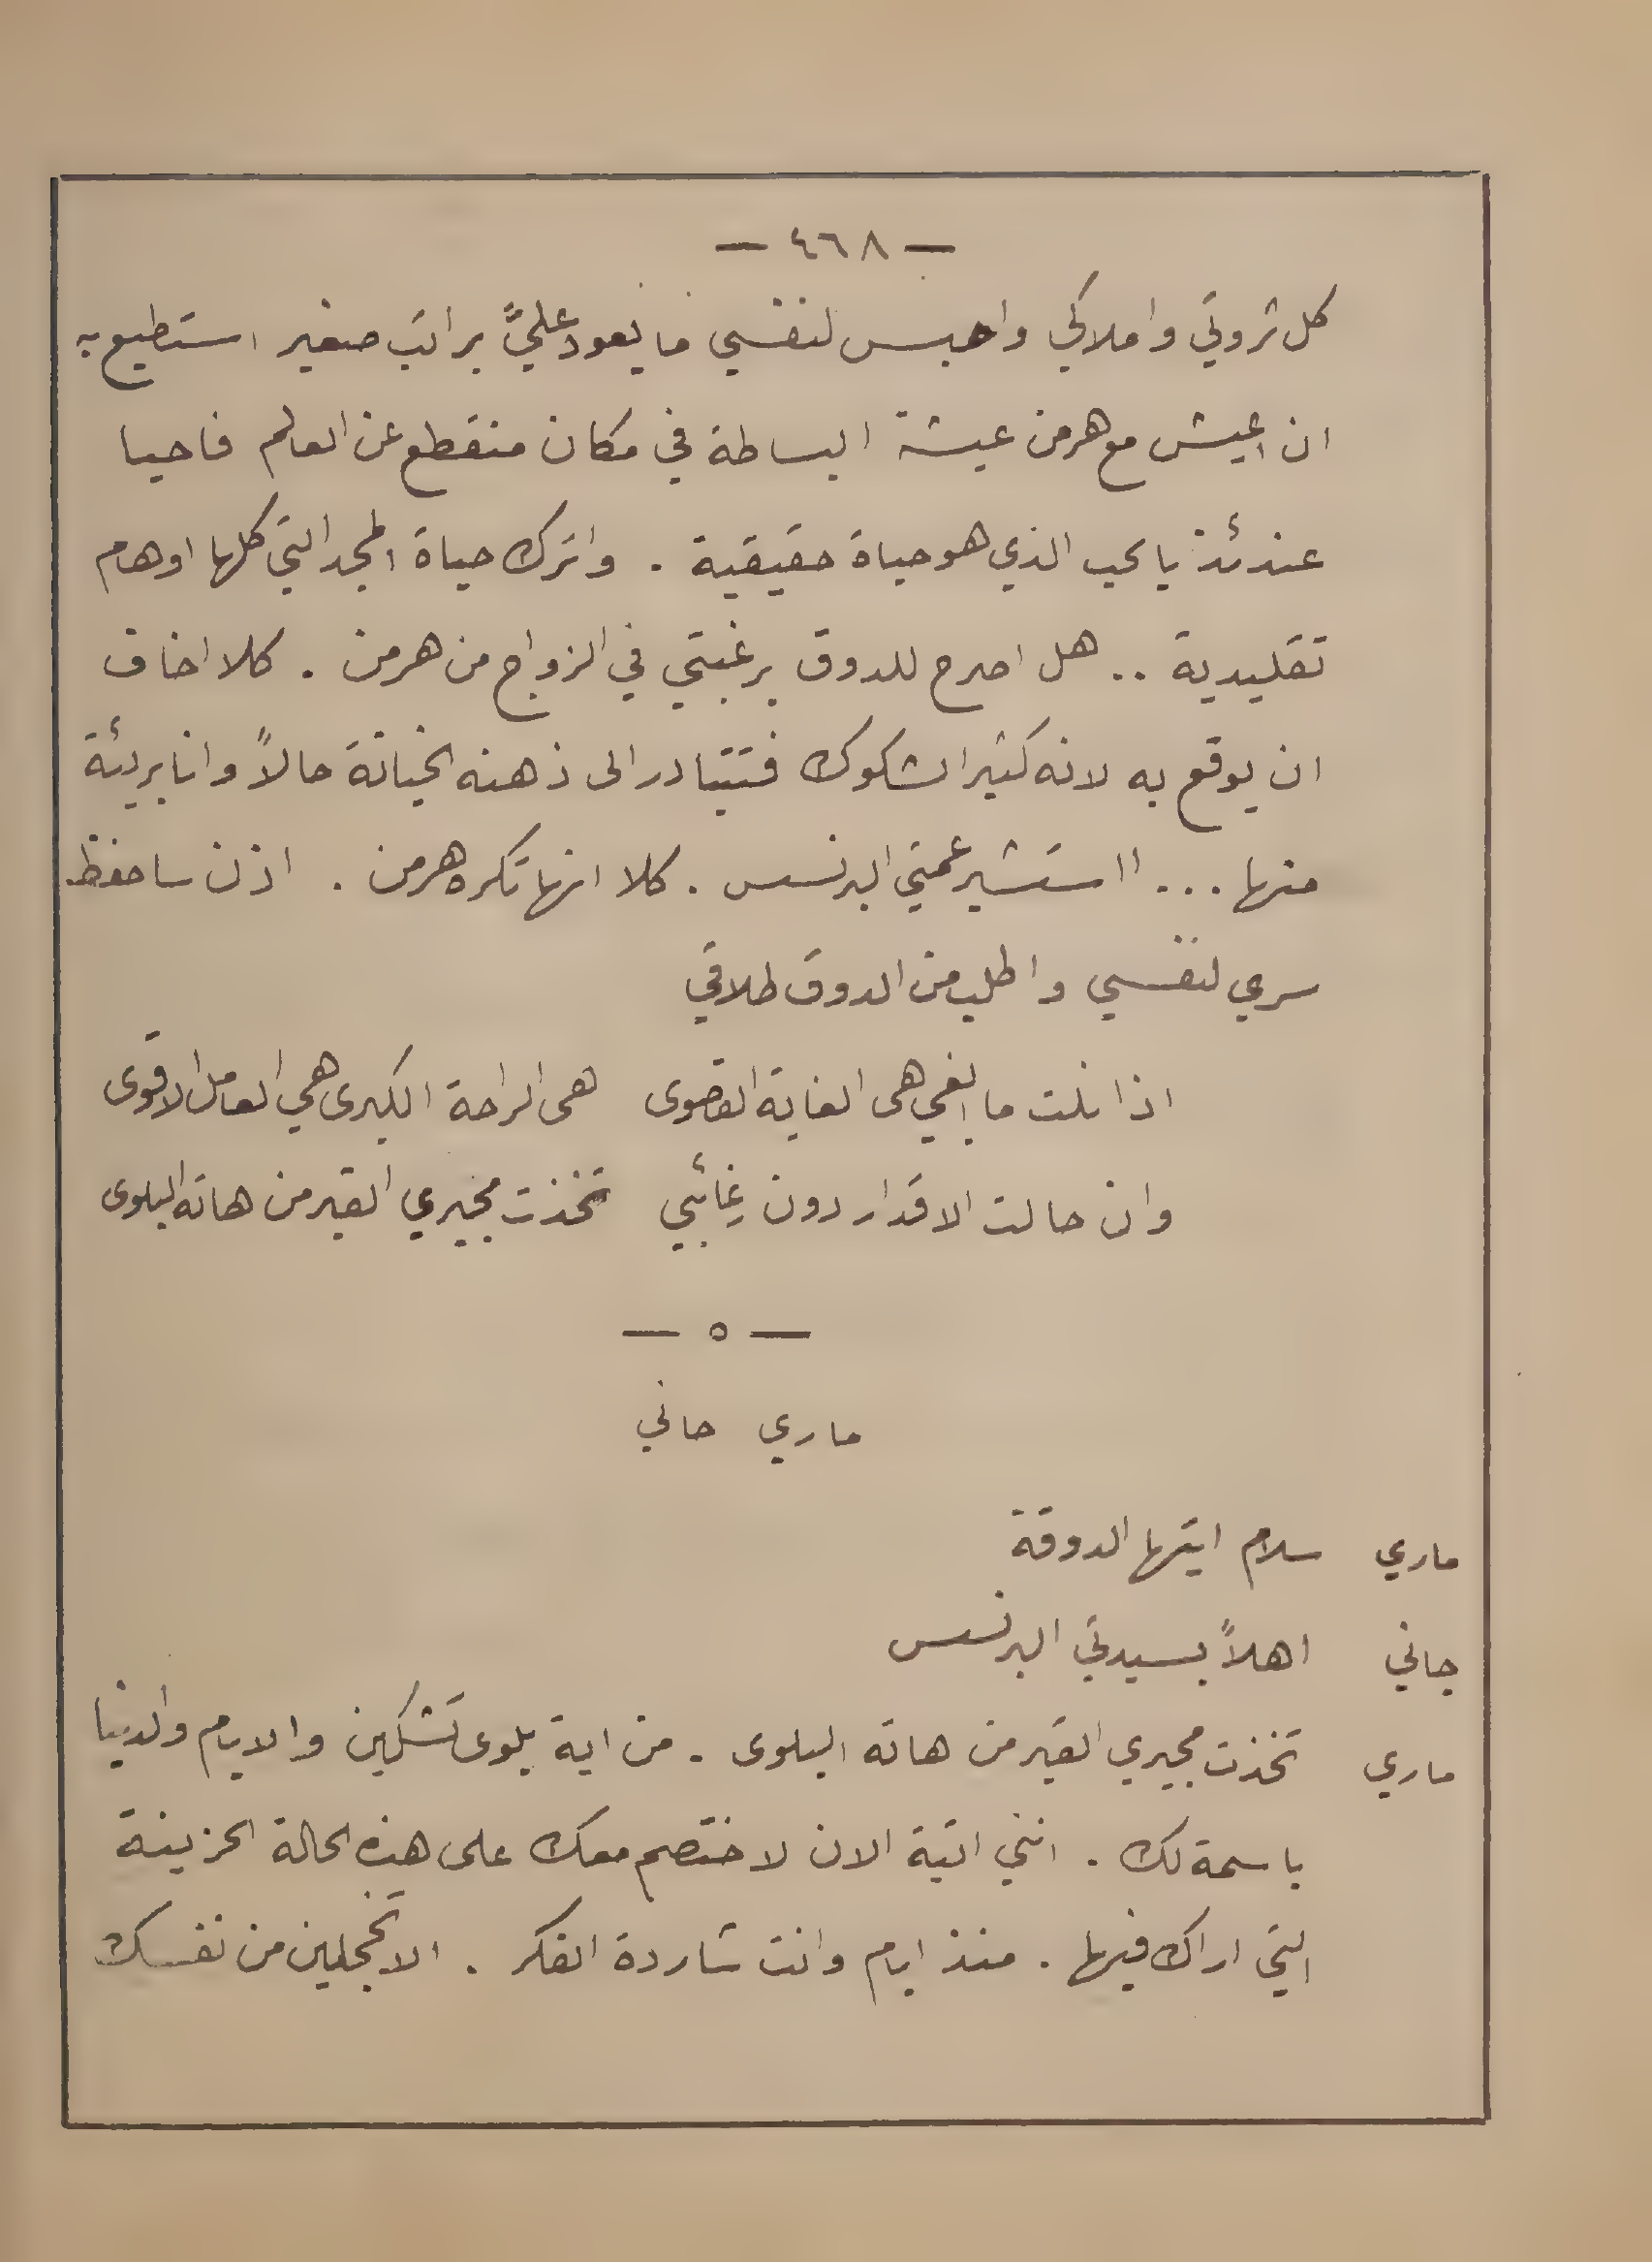 — ٤٦٨ —
كل ثروتي واملاكي واحبس لنفسي ما يعود عليَّ براتب صغير استطيع به
ان اعيش مع هرمن عيشة البساطة في مكان منقطع عن العالم فاحيا
عندئذ بالحب الذي هو حياة حقيقية . واترك حياة المجد التي كلها اوهام
تقليدية .. هل اصرح للدوق برغبتي في الزواج من هرمن . كلا اخاف
ان يوقع به لانه كثير الشكوك فتتبادر الى ذهنه الخيانة حالاً وانا بريئة
منها ... ااستشير عمتي البرنسس . كلا انها تكره هرمن . اذن ساحفظ
سري لنفسي واطلب من الدوق طلاقي
اذا نلت ما ابغي هي الغاية القصوى هي الراحة الكبرى هي العامل الاقوى
وان حالت الاقدار دون رغائبي تخذت مجيري القبر من هاته البلوى
— ٥ —
ماري جاني
ماري سلام ايتها الدوقة
جاني اهلاً بسيدتي البرنسس
ماري تخذت مجيري القبر من هاته البلوى . من اية بلوى تشكين والايام والدنيا
باسمة لك . انني اتية الان لاختصم معك على هذه الحالة الحزينة
التي اراك فيها . منذ ايام وانت شاردة الفكر . الا تخجلين من نفسك